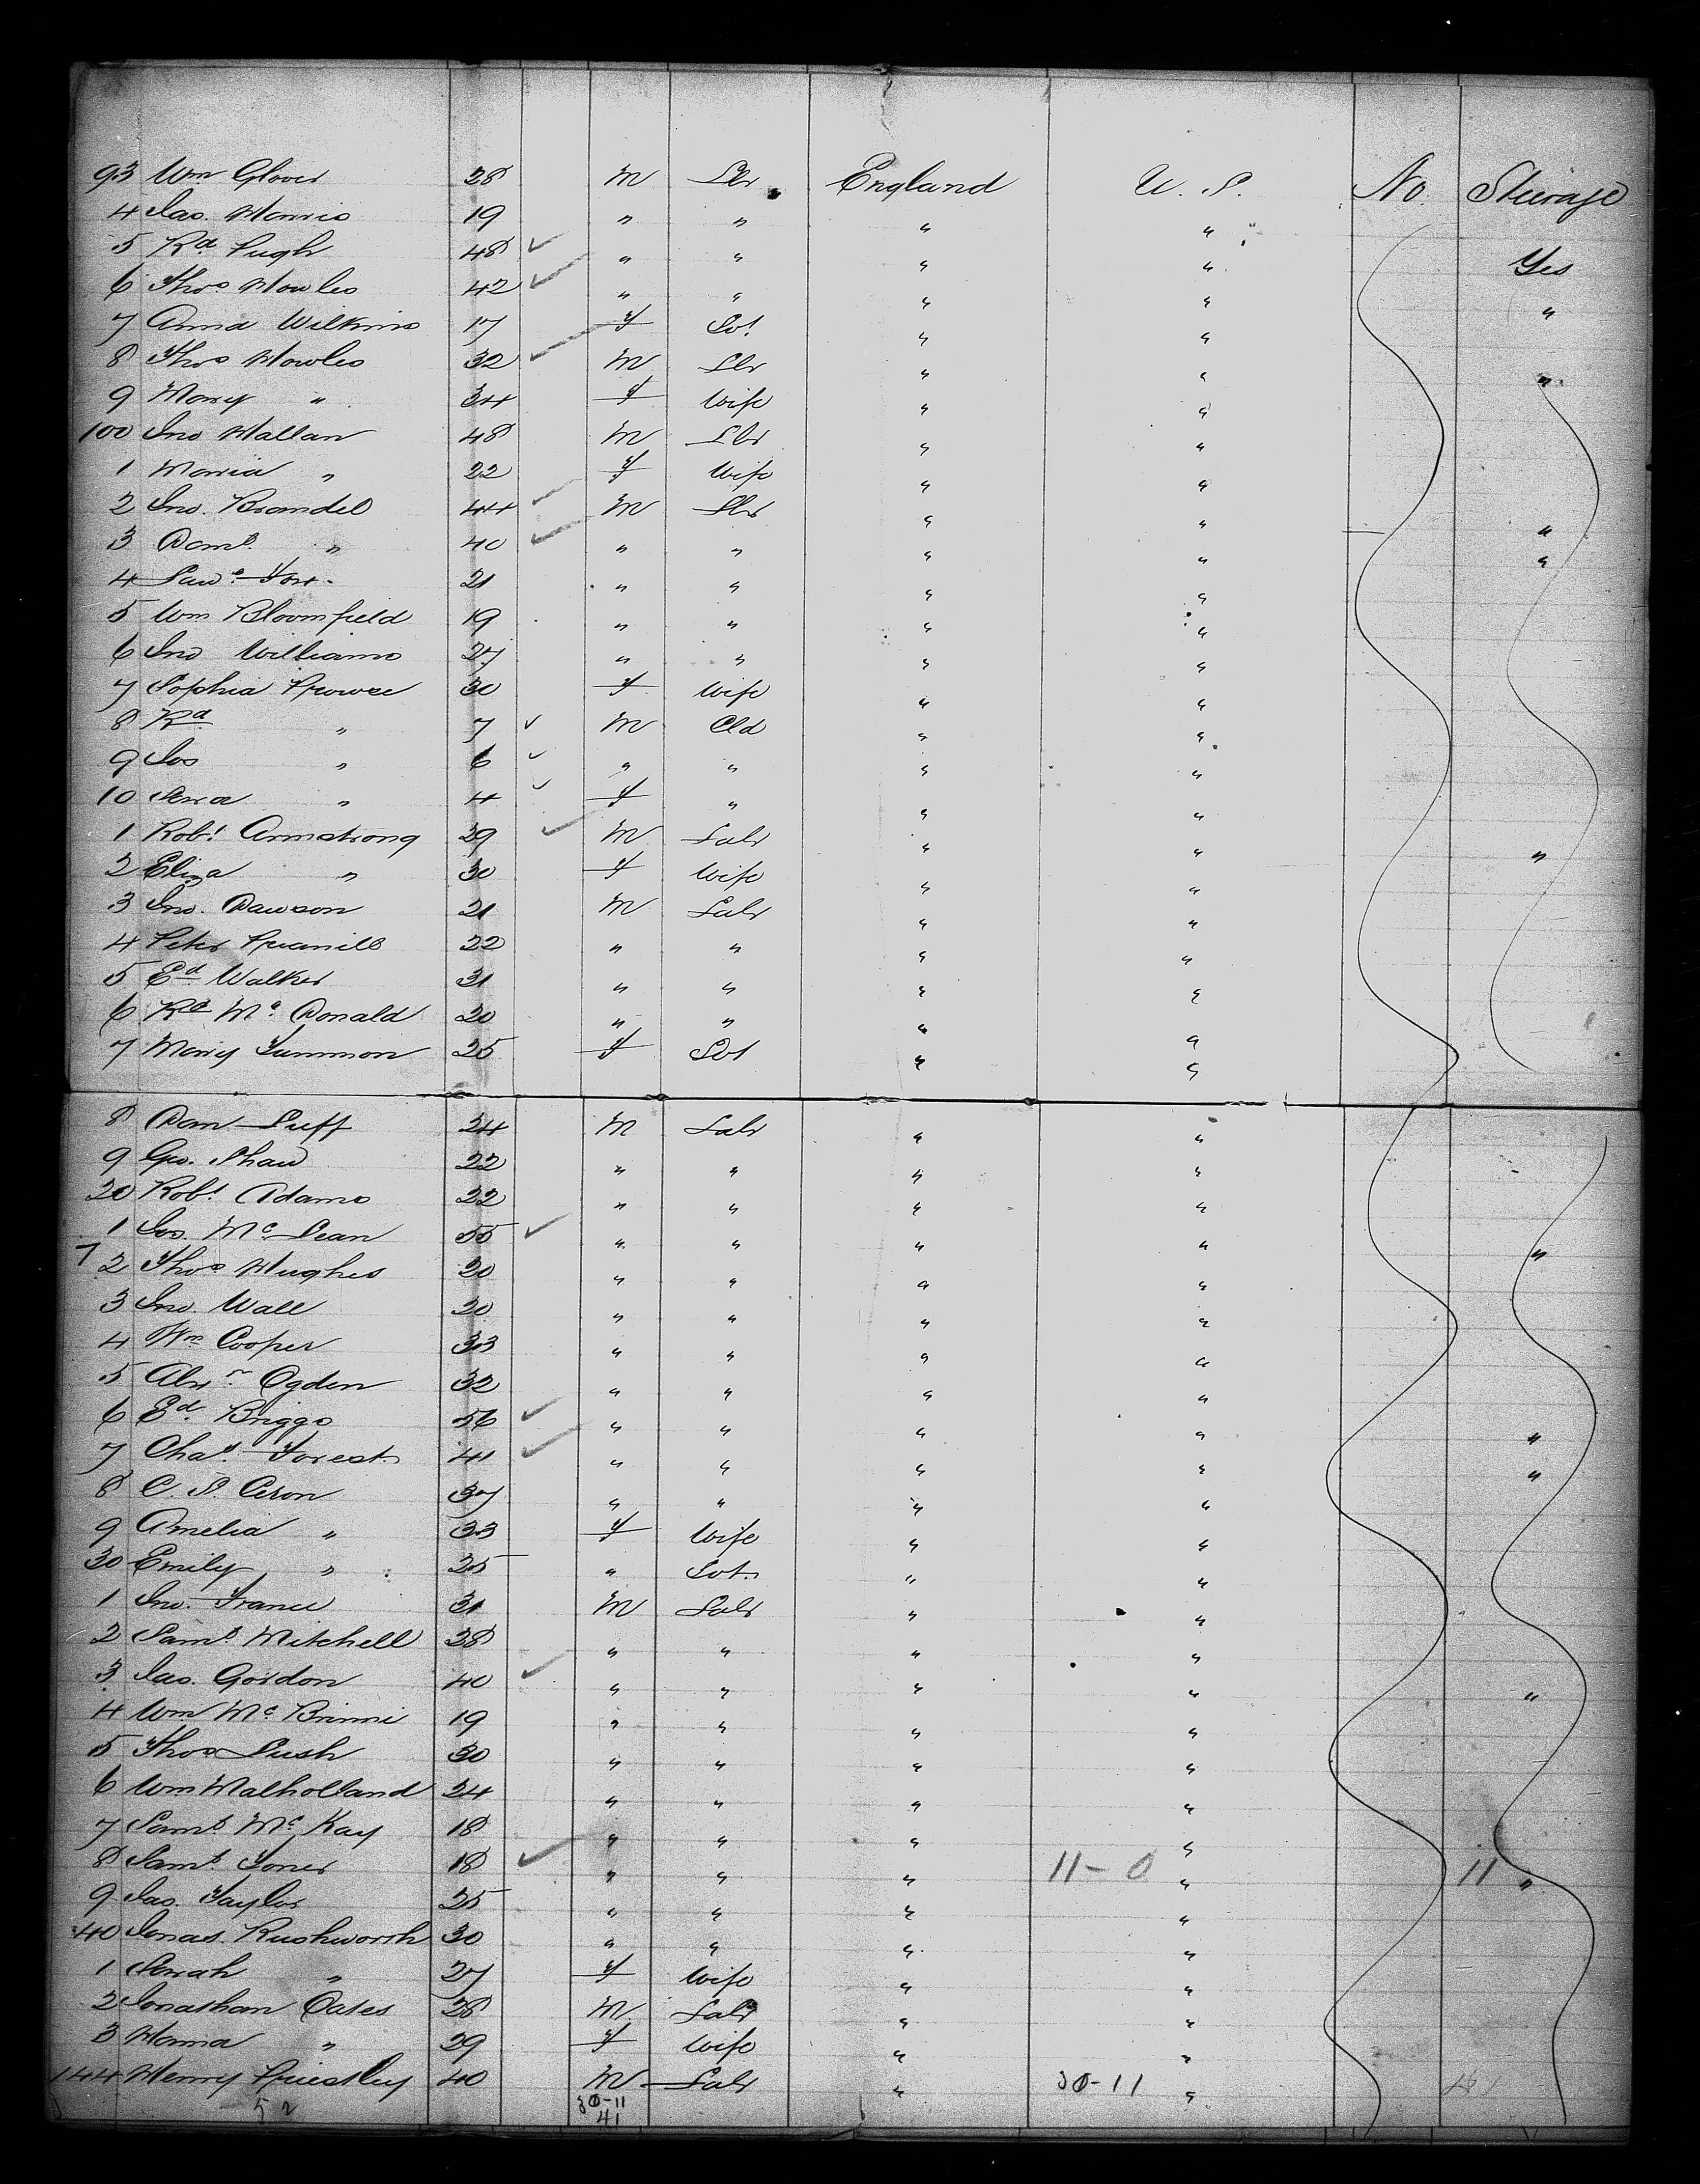 93 Wm Glover 28 M Lbr England U. S. No. Steerage
4 Jas. Harris 19 " " " "
5 Rd Pugh 48 ✓ " " " " Yes
6 Thos Howles 42 ✓ " " " " "
7 Anna Wilkins 17 F Svt " "
8 Thos Howles 32 ✓ M Lbr " " "
9 Mary " 34 F Wife " "
100 Jno Hallan 48 M Lbr " "
1 Maria " 22 F Wife " "
2 Jno. Brandel 44 ✓ M Lbr " " "
3 Danl " 40 ✓ " " " " "
4 Fox 21 " " " "
5 Wm Bloomfield 19 " " " "
6 Jno Williams 27 " " " "
7 Sophia 30 F Wife " "
8 Rd " 7 ✓ M Cld " "
9 Jos " 6 ✓ " " " "
10 " 4 ✓ F " " "
1 Robt Armstrong 29 ✓ M Labr " " "
2 Eliza " 30 F Wife " "
3 Jno. Dawson 21 M Labr " "
4 Peter 22 " " " "
5 Ed Walker 31 " " " "
6 Rd Mc Donald 20 " " " "
7 Mary Tummon 25 F Svt " "
8 Dan Luff 24 M Labr " "
9 Geo. Shaw 22 " " " "
20 Robt Adams 22 " " " "
1 Jos. Mc Lean 55 ✓ " " " " "
2 Thos Hughes 20 " " " "
3 Jno. Wall 20 " " " "
4 Wm Cooper 33 " " " "
5 Alexr Ogden 32 " " " "
6 Ed. Briggs 56 ✓ " " " " "
7 Chas. Forest 41 ✓ " " " " "
8 C. S. Ceron 37 " " " "
9 Amelia " 33 F Wife " "
30 Emily " 25 " Svt. " "
1 Jno. France 31 M Labr " "
2 Saml Mitchell 28 " " " "
3 Jas. Gordon 40 ✓ " " " " "
4 Wm Mc Brinni 19 " " " "
5 Thos Lush 30 " " " "
6 Wm Malholland 24 " " " "
7 Saml Mc Kay 18 " " " "
8 Saml Toner 18 ✓ " " " 11-0 " 11 "
9 Jas. Taylor 25 " " " "
40 Jonas. Rushworth 30 " " " "
1 Sarah " 27 F Wife " "
2 Jonathan Oates 28 M Labr " "
3 Hanna " 29 F Wife " "
144 Henry Priestley 40 M Labr " 30-11 "
52 30-11
41